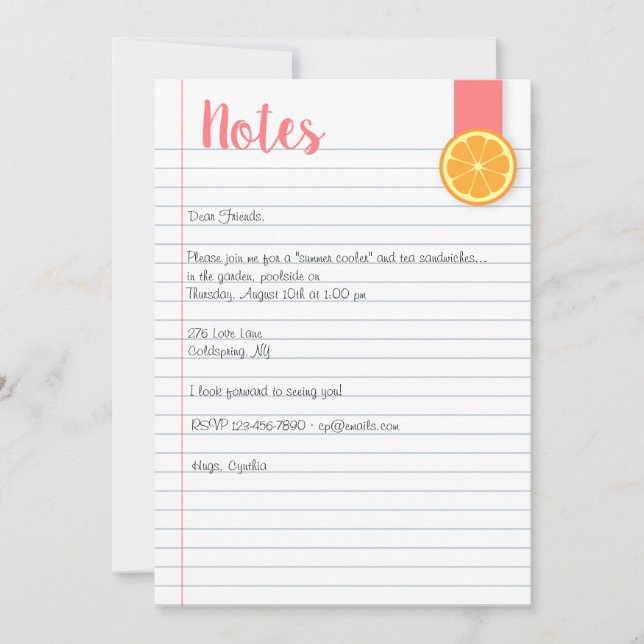 Notes
Dear Friends,
Please join me for a "summer cooler" and tea sandwiches...
in the garden, poolside on
Thursday, August 10th at 1:00 pm
276 Love Lane
Coldspring, NY
I look forward to seeing you!
RSVP 123-456-7890 · cp@emails.com
Hugs, Cynthia